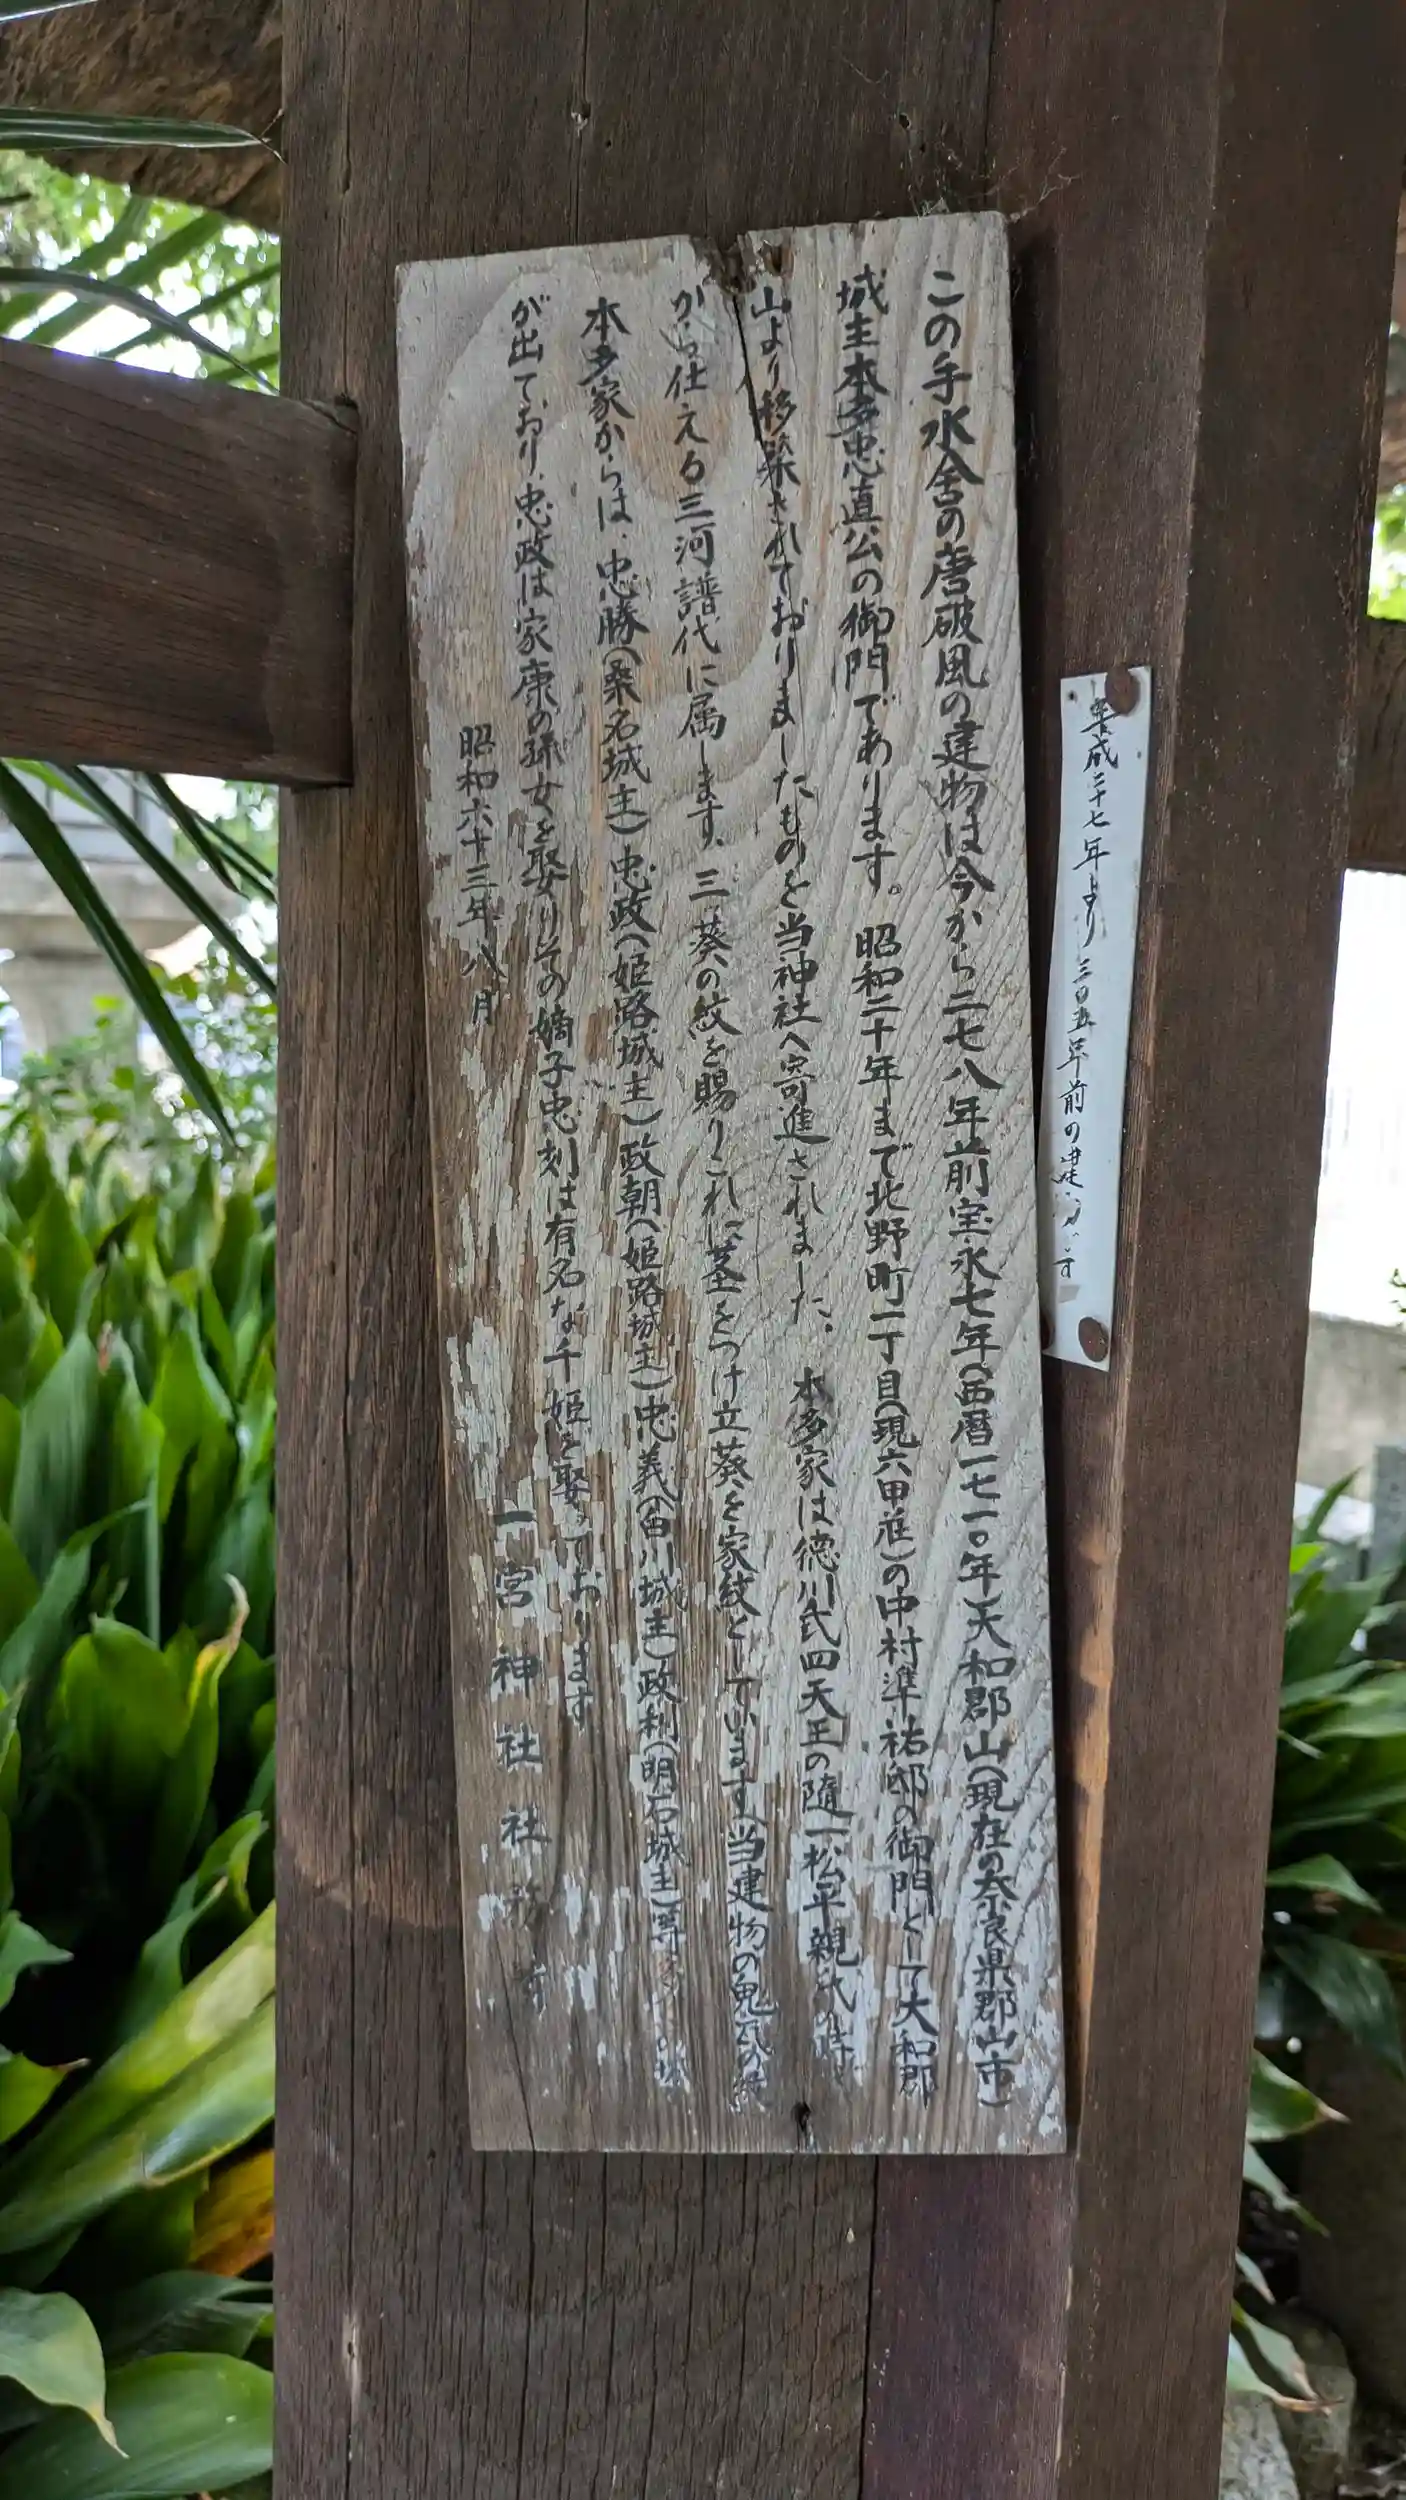 平成二十七年より三〇五年前の建物です
この手水舎の唐破風の建物は今から二七八年前宝永七年(西暦一七一〇年)大和郡山(現在の奈良県郡山市)
城主本多忠直公の御門であります。昭和二十年まで北野町一丁目(現六甲荘)の中村準祐邸の御門として大和郡
山より移築されておりましたものを当神社へ寄進されました。本多家は徳川氏四天王の随一松平親氏の時
から仕える三河譜代に属します、三葵の紋を賜りこれに茎をつけ立葵を家紋としています(当建物の鬼瓦の紋
本多家からは、忠勝(桑名城主)忠政(姫路城主)政朝(姫路城主)忠義(白川城主)政利(明石城主)等
が出ており、忠政は家康の孫女を娶りその嫡子忠刻は有名な千姫を娶っております
昭和六十三年八月
一宮神社社務所